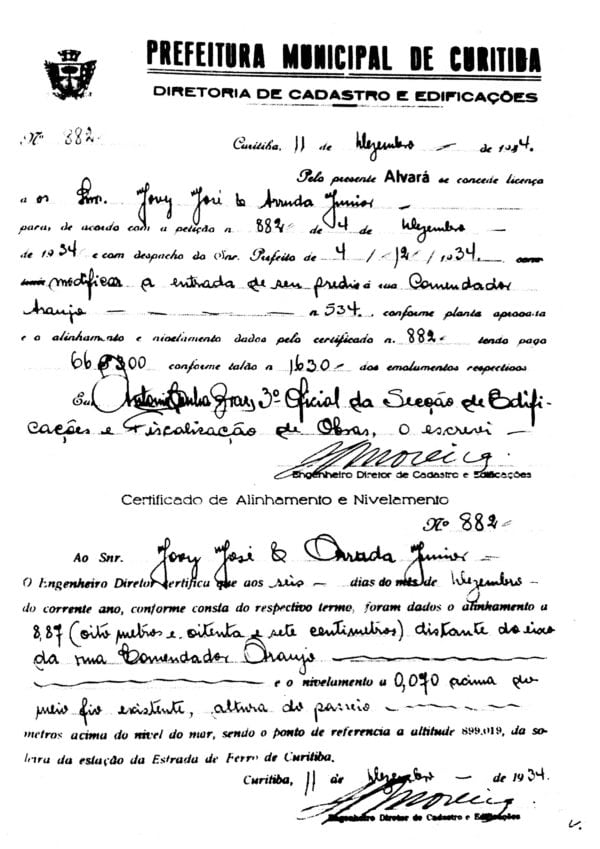 PREFEITURA MUNICIPAL DE CURITIBA
DIRETORIA DE CADASTRO E EDIFICAÇÕES
Nº 882
Curitiba, 11 de Dezembro de 1934.
Pelo presente Alvará se concede licença
a os Snr. José Arruda Junior
para, de acordo com a petição n. 882 de 4 de Dezembro
de 1934 e com despacho do Snr. Prefeito de 4 / 12 / 1934.
modificar a entrada de seu predio á rua Comendador
Araujo n 534, conforme planta aprovada
e o alinhamento e nivelamento dados pelo certificado n. 882 tendo pago
conforme talão n 1630 dos emolumentos respectivos
Eu 3º Oficial da Secção de Edifi-
cações e Fiscalização de Obras, o escrevi
Moreira
Engenheiro Diretor de Cadastro e Edificações
Certificado de Alinhamento e Nivelamento
Nº 882
Ao Snr. José Junior
O Engenheiro Diretor certifica que aos seis dias do mês de Dezembro
do corrente ano, conforme consta do respectivo termo, foram dados o alinhamento a
8,87 (oito metros e oitenta e sete centimetros) distante do eixo
da rua Comendador Araujo
e o nivelamento a 0,070 acima do
meio fio existente, altura do passeio
metros acima do nivel do mar, sendo o ponto de referencia a altitude 899.019, da so-
leira da estação da Estrada de Ferro de Curitiba.
Curitiba, 11 de Dezembro de 1934.
Moreira
Engenheiro Diretor de Cadastro e Edificações